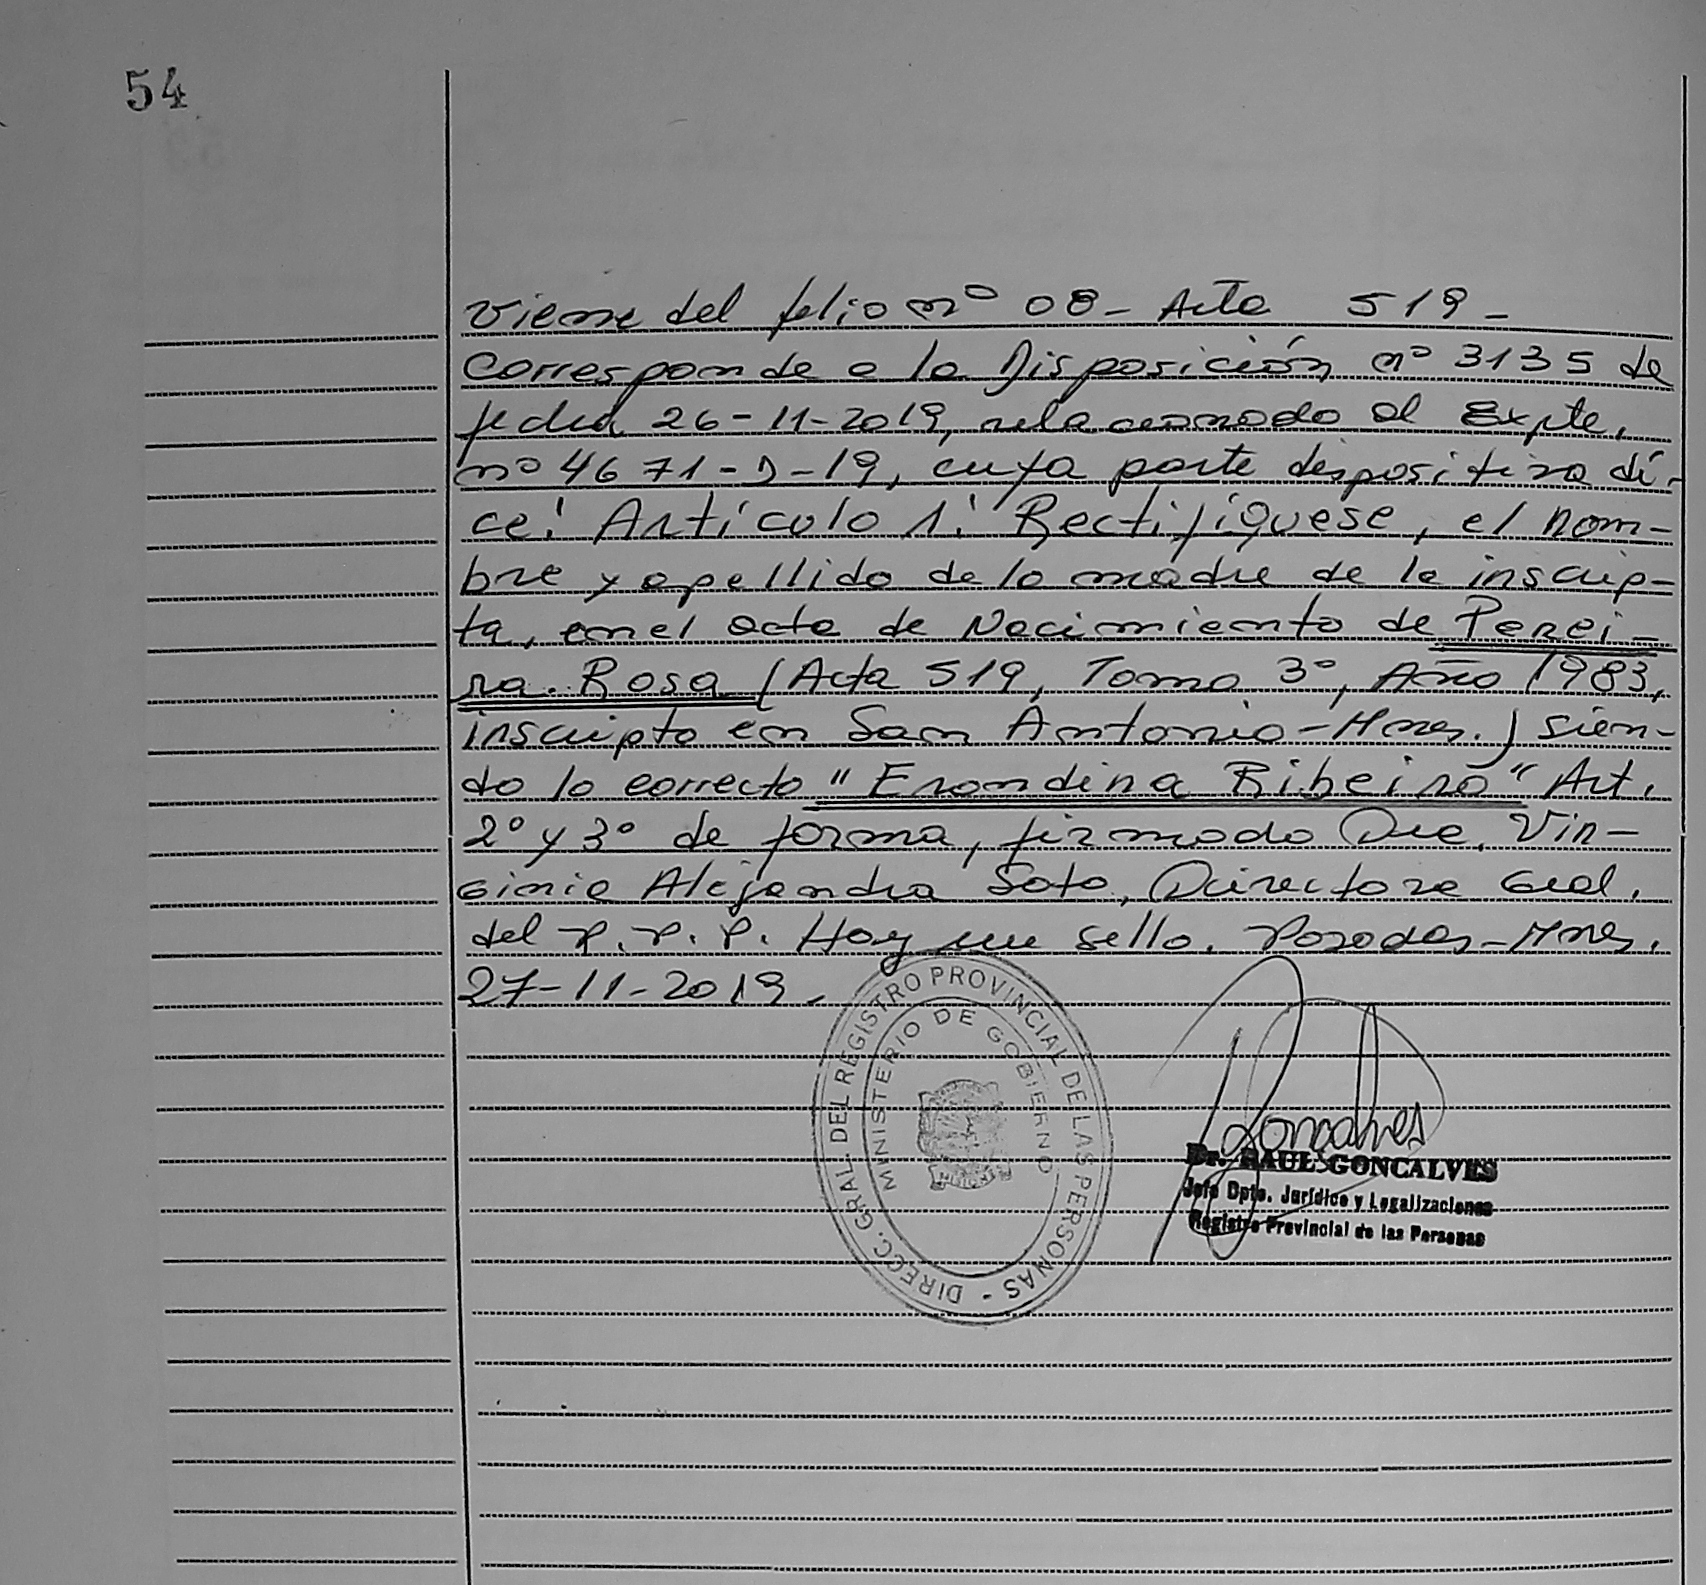 54
viene del folio nº 08- Acta 519-
Corresponde a la Disposición nº 3135 de
fecha 26-11-2019, relacionado al Expte.
nº 4671-D-19, cuya parte dispositiva di-
ce: Artículo 1: Rectifíquese, el nom-
bre y apellido de la madre de la inscrip-
ta, en el acta de Nacimiento de Perei-
ra Rosa (Acta 519, Tomo 3º, Año 1983,
inscripto en San Antonio-Mnes.) sien-
do lo correcto "Erondina Ribeiro" Art.
2º y 3º de forma, firmado Dra. Vir-
ginia Alejandra Soto, Directora Gral.
del R.P.P. Hay un sello. Posadas-Mnes.
27-11-2019.
DIRECC. GRAL. DEL REGISTRO PROVINCIAL DE LAS PERSONAS -
MINISTERIO DE GOBIERNO
Goncalves
Dr. RAUL GONCALVES
Jefe Dpto. Jurídico y Legalizaciones
Registro Provincial de las Personas